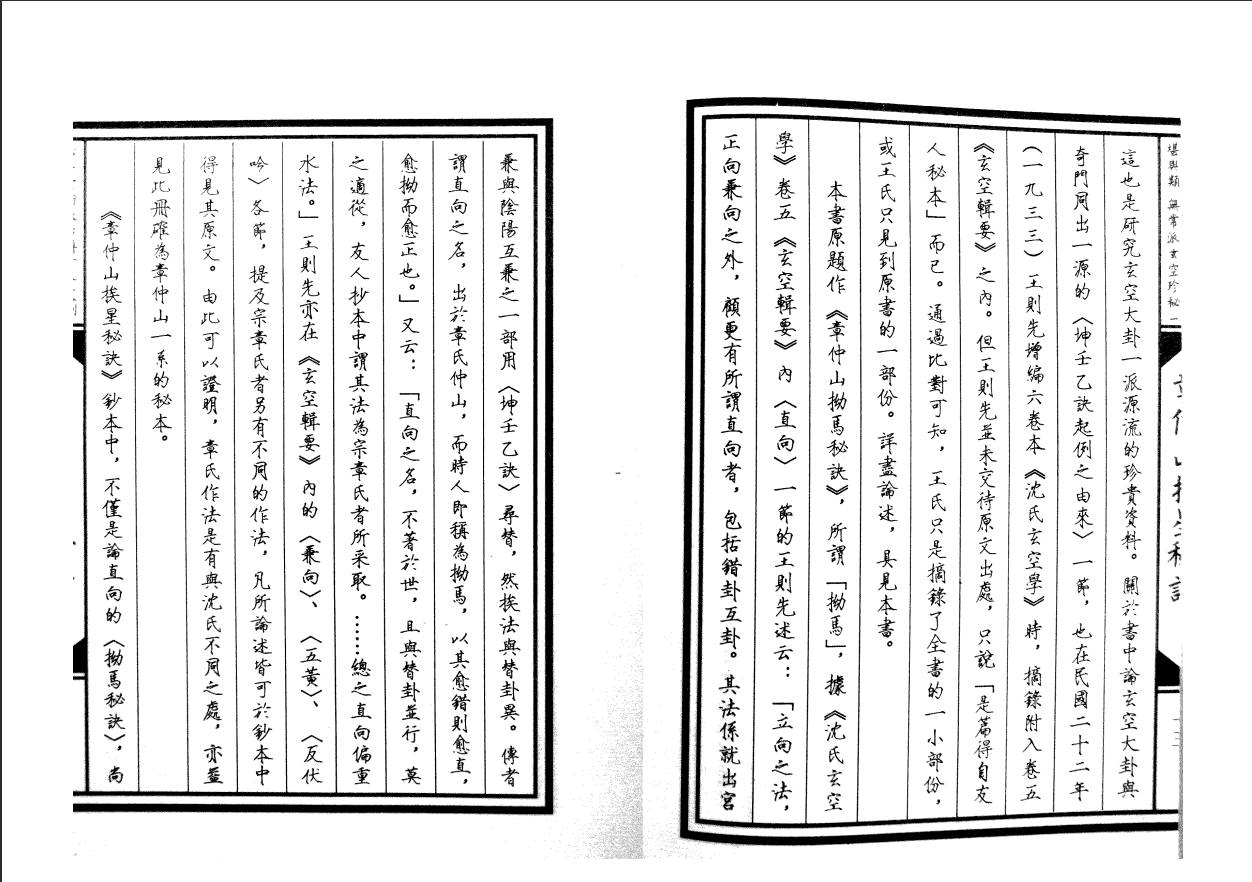 堪輿類 無常派玄空珍秘 一
這也是研究玄空大卦一派源流的珍貴資料。關於書中論玄空大卦與
奇門同出一源的〈坤壬乙訣起例之由來〉一節，也在民國二十二年
（一九三三）王則先增編六卷本《沈氏玄空學》時，摘錄附入卷五
《玄空輯要》之內。但王則先並未交待原文出處，只說「是篇得自友
人秘本」而已。通過比對可知，王氏只是摘錄了全書的一小部份，
或王氏只見到原書的一部份。詳盡論述，具見本書。
本書原題作《章仲山拗馬秘訣》，所謂「拗馬」，據《沈氏玄空
學》卷五《玄空輯要》內〈直向〉一節的王則先述云：「立向之法，
正向兼向之外，顧更有所謂直向者，包括錯卦互卦。其法係就出宮
兼與陰陽互兼之一部用〈坤壬乙訣〉尋替，然挨法與替卦異。傳者
謂直向之名，出於章氏仲山，而時人即稱為拗馬，以其愈錯則愈直，
愈拗而愈正也。」又云：「直向之名，不著於世，且與替卦並行，莫
之適從，友人抄本中謂其法為宗章氏者所采取。……總之直向偏重
水法。」王則先亦在《玄空輯要》內的〈兼向〉、〈五黃〉、〈反伏
吟〉各節，提及宗章氏者另有不同的作法，凡所論述皆可於鈔本中
得見其原文。由此可以證明，章氏作法是有與沈氏不同之處，亦益
見此冊確為章仲山一系的秘本。
《章仲山挨星秘訣》鈔本中，不僅是論直向的〈拗馬秘訣〉，尚